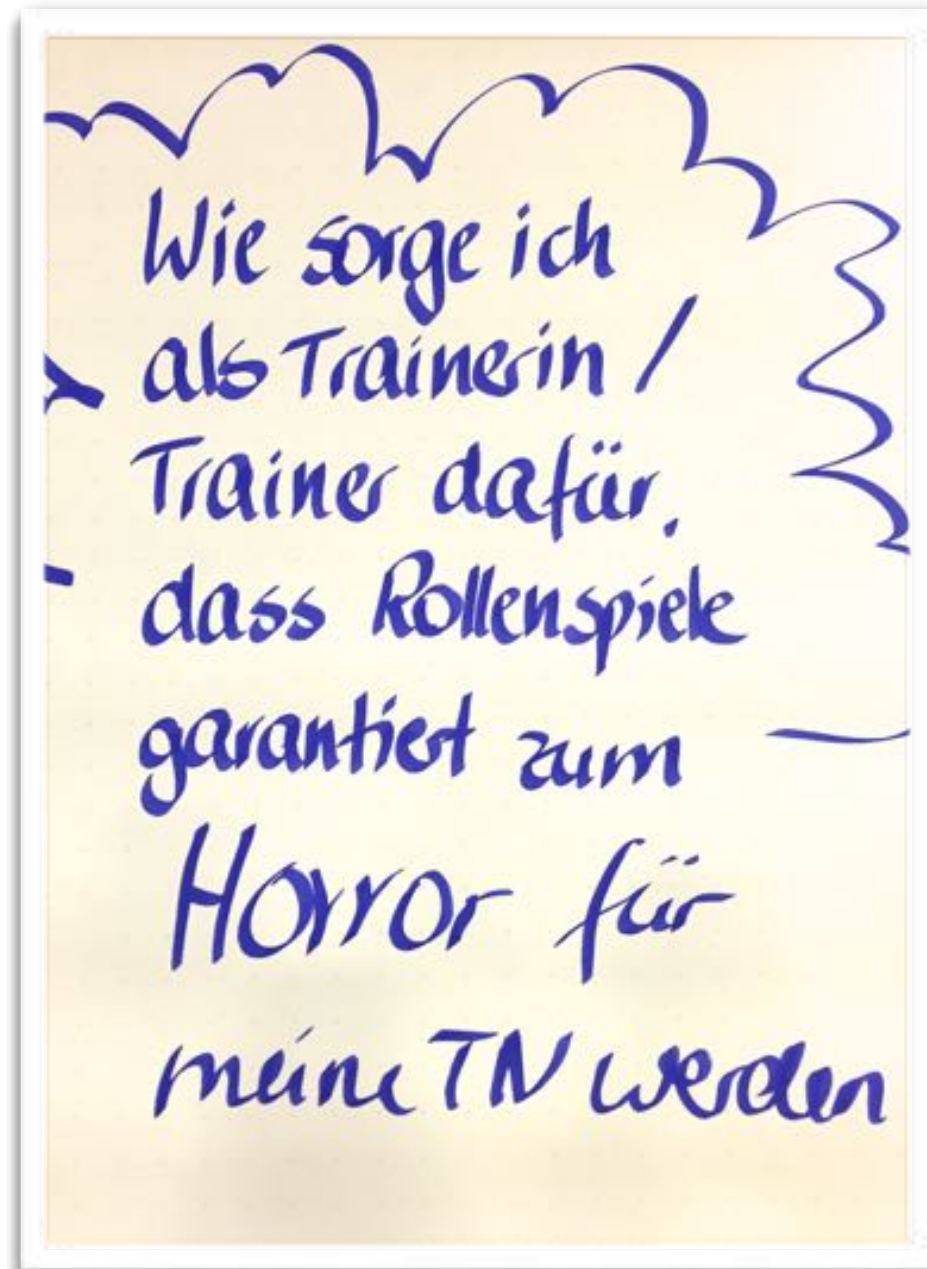 Wie sorge ich
als Trainerin /
Trainer dafür,
dass Rollenspiele
garantiert zum
Horror für
meine TN werden